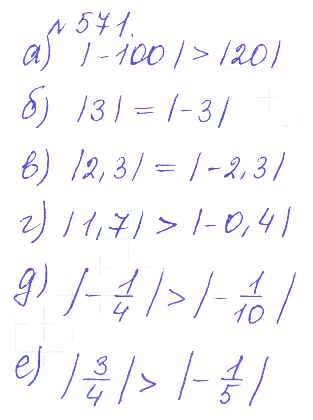 № 571.
а) |-100| > |20|
б) |3| = |-3|
в) |2,3| = |-2,3|
г) |1,7| > |-0,4|
д) |-1/4| > |-1/10|
е) |3/4| > |-1/5|